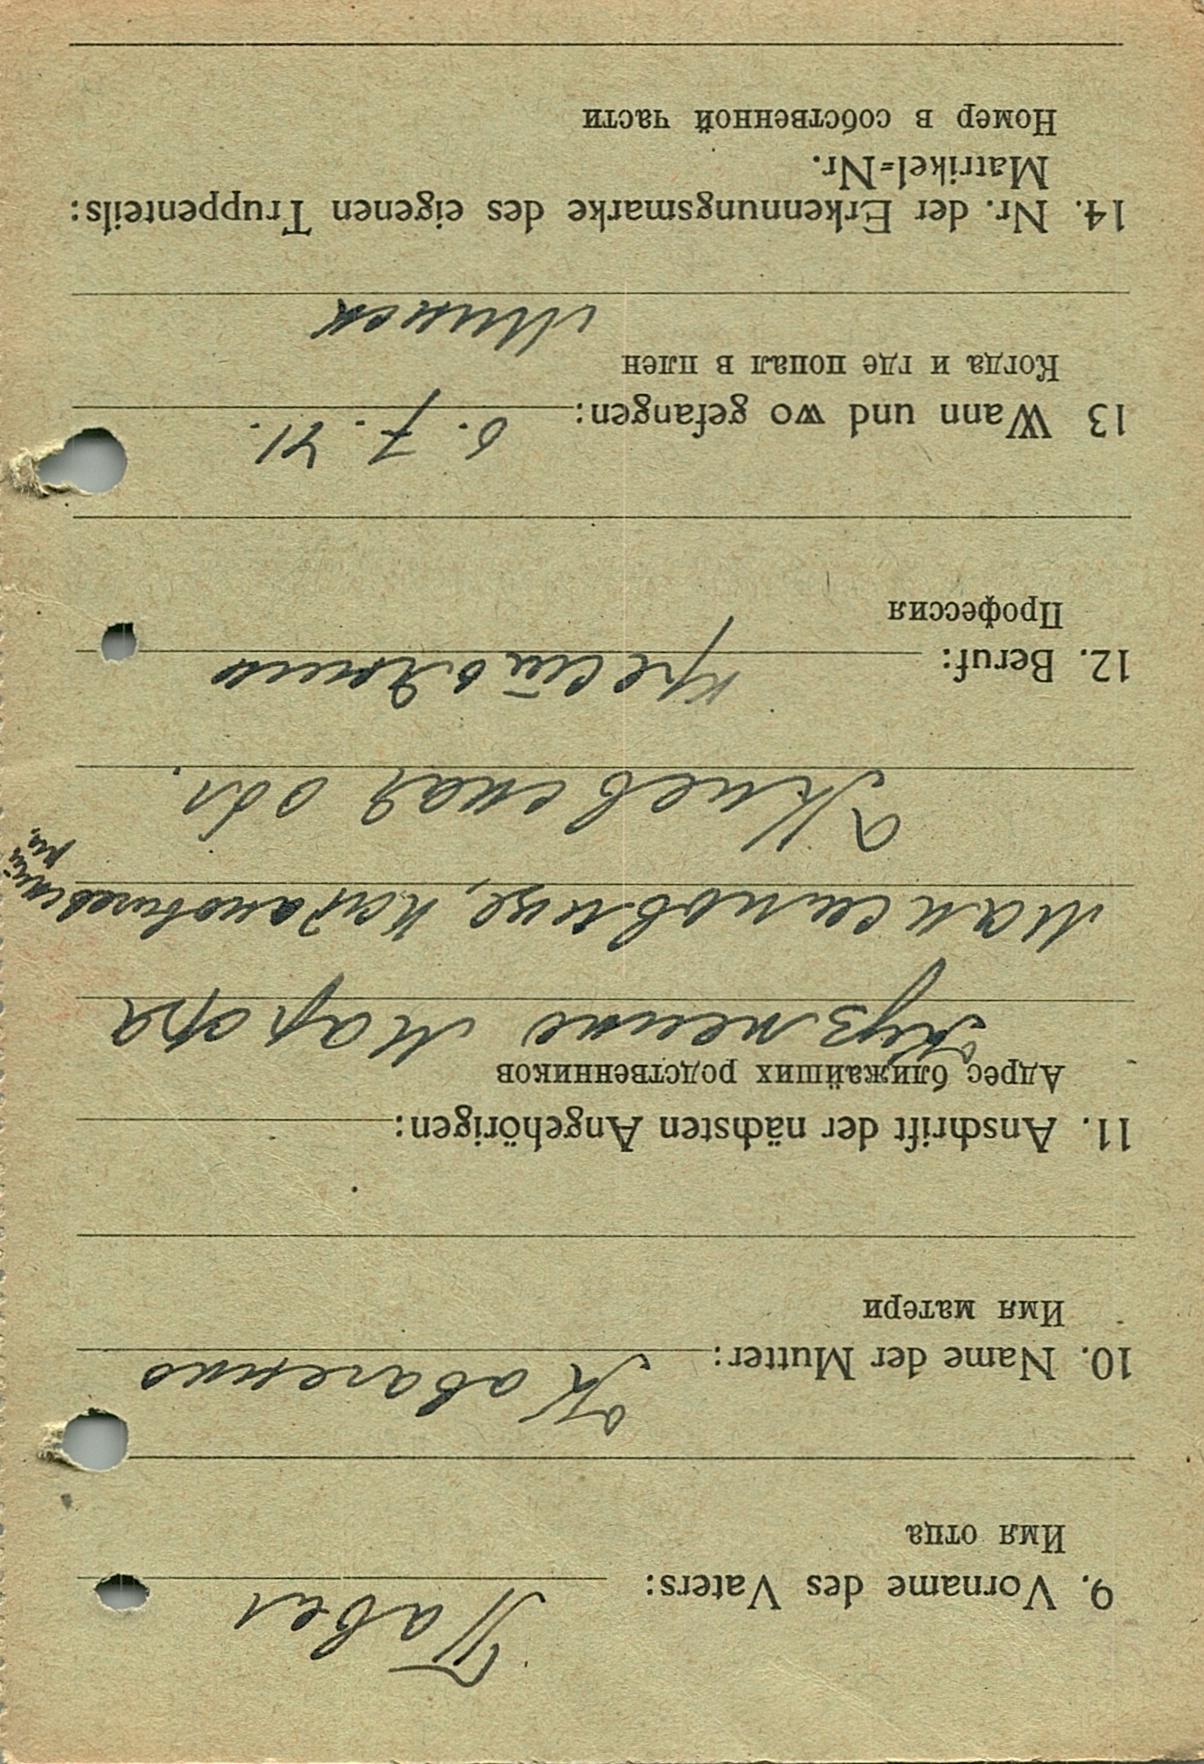 9. Vorname des Vaters: Павел
Имя отца
10. Name der Mutter: Коваленко
Имя матери
11. Anschrift der nächsten Angehörigen:
Адрес ближайших родственников
Кузменко
12. Beruf:
Профессия
Киевская обл.
13 Wann und wo gefangen: 6. 7. 41.
Когда и где попал в плен
Минск
14. Nr. der Erkennungsmarke des eigenen Truppenteils:
Matrikel=Nr.
Номер в собственной части